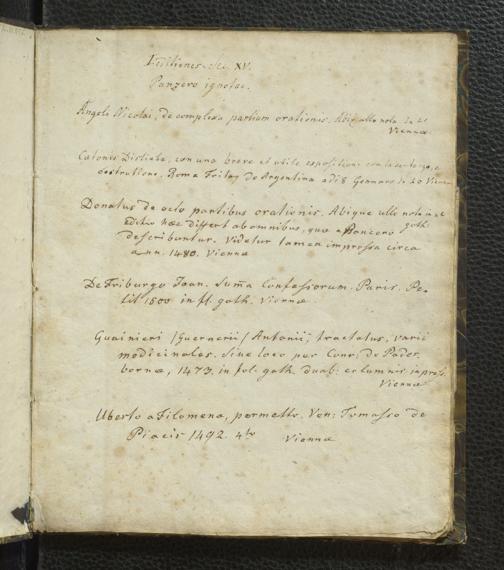 Editiones Sec. XV.
Panzero ignotae.
Angeli Nicolai, de complexu partium orationis. Absq. ulla nota. in 4to
Viennae
Catonis Disticha, con una breve et utile expositione
Roma Freitag de Argentina adi 8 Gennaro in 4o Viennae
Donatus de octo partibus orationis. Absque ulla nota in 4to
Editio haec differt ab omnibus, quae a Panzero goth.
describuntur. Videtur tamen impressa circa
ann. 1480. Viennae
De Friburgo Joan. Sum̄a Confessorum. Paris. Pe-
tit 1500 in fl. goth. Viennae.
Guainieri /Guernerii/ Antonii, tractatus, varii
medicinales. Sine loco per Conr: de Pader-
bornae, 1473. in fol. goth. duab: columnis impress.
Viennae
Uberto a Filomena, permetto. Ven: Tomaso de
Piacis 1492. 4to Viennae